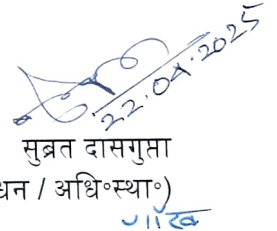 22.04.2025
सुब्रत दासगुप्ता
धन / अधि॰स्था॰)